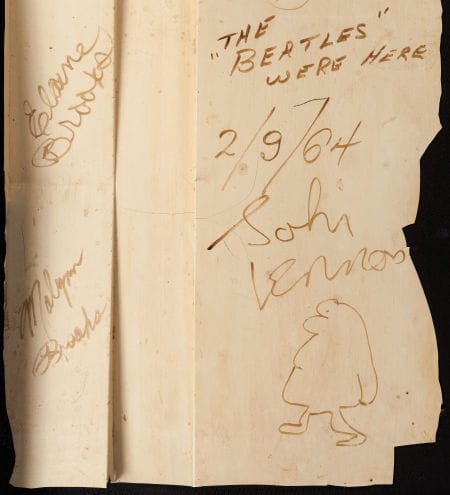 Elaine
Brooks
THE
"BEATLES"
WERE HERE
2/9/64
John
Lennon
Brooks